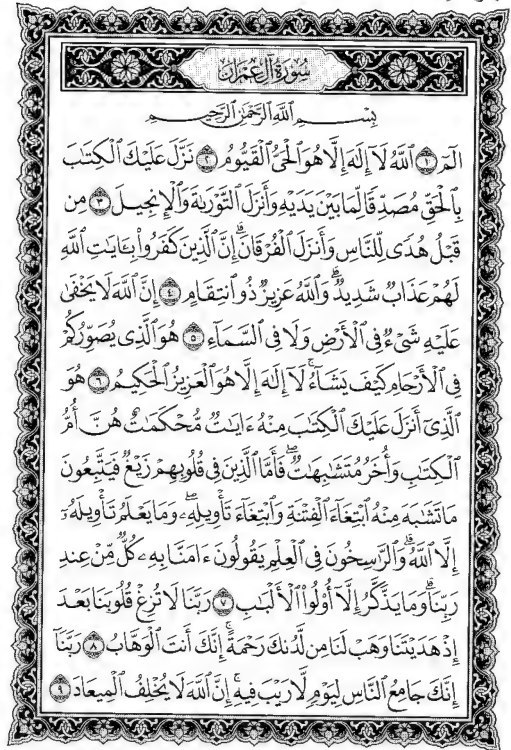 سُورَةُ آلِ عِمْرَان
بِسْمِ ٱللَّهِ ٱلرَّحْمَٰنِ ٱلرَّحِيمِ
الٓمٓ ۝١ ٱللَّهُ لَآ إِلَٰهَ إِلَّا هُوَ ٱلْحَىُّ ٱلْقَيُّومُ ۝٢ نَزَّلَ عَلَيْكَ ٱلْكِتَٰبَ
بِٱلْحَقِّ مُصَدِّقًا لِّمَا بَيْنَ يَدَيْهِ وَأَنزَلَ ٱلتَّوْرَىٰةَ وَٱلْإِنجِيلَ ۝٣ مِن
قَبْلُ هُدًى لِّلنَّاسِ وَأَنزَلَ ٱلْفُرْقَانَ ۗ إِنَّ ٱلَّذِينَ كَفَرُوا۟ بِـَٔايَٰتِ ٱللَّهِ
لَهُمْ عَذَابٌ شَدِيدٌ ۗ وَٱللَّهُ عَزِيزٌ ذُو ٱنتِقَامٍ ۝٤ إِنَّ ٱللَّهَ لَا يَخْفَىٰ
عَلَيْهِ شَىْءٌ فِى ٱلْأَرْضِ وَلَا فِى ٱلسَّمَآءِ ۝٥ هُوَ ٱلَّذِى يُصَوِّرُكُمْ
فِى ٱلْأَرْحَامِ كَيْفَ يَشَآءُ ۚ لَآ إِلَٰهَ إِلَّا هُوَ ٱلْعَزِيزُ ٱلْحَكِيمُ ۝٦ هُوَ
ٱلَّذِىٓ أَنزَلَ عَلَيْكَ ٱلْكِتَٰبَ مِنْهُ ءَايَٰتٌ مُّحْكَمَٰتٌ هُنَّ أُمُّ
ٱلْكِتَٰبِ وَأُخَرُ مُتَشَٰبِهَٰتٌ ۖ فَأَمَّا ٱلَّذِينَ فِى قُلُوبِهِمْ زَيْغٌ فَيَتَّبِعُونَ
مَا تَشَٰبَهَ مِنْهُ ٱبْتِغَآءَ ٱلْفِتْنَةِ وَٱبْتِغَآءَ تَأْوِيلِهِۦ ۗ وَمَا يَعْلَمُ تَأْوِيلَهُۥٓ
إِلَّا ٱللَّهُ ۗ وَٱلرَّٰسِخُونَ فِى ٱلْعِلْمِ يَقُولُونَ ءَامَنَّا بِهِۦ كُلٌّ مِّنْ عِندِ
رَبِّنَا ۗ وَمَا يَذَّكَّرُ إِلَّآ أُو۟لُوا۟ ٱلْأَلْبَٰبِ ۝٧ رَبَّنَا لَا تُزِغْ قُلُوبَنَا بَعْدَ
إِذْ هَدَيْتَنَا وَهَبْ لَنَا مِن لَّدُنكَ رَحْمَةً ۚ إِنَّكَ أَنتَ ٱلْوَهَّابُ ۝٨ رَبَّنَآ
إِنَّكَ جَامِعُ ٱلنَّاسِ لِيَوْمٍ لَّا رَيْبَ فِيهِ ۚ إِنَّ ٱللَّهَ لَا يُخْلِفُ ٱلْمِيعَادَ ۝٩